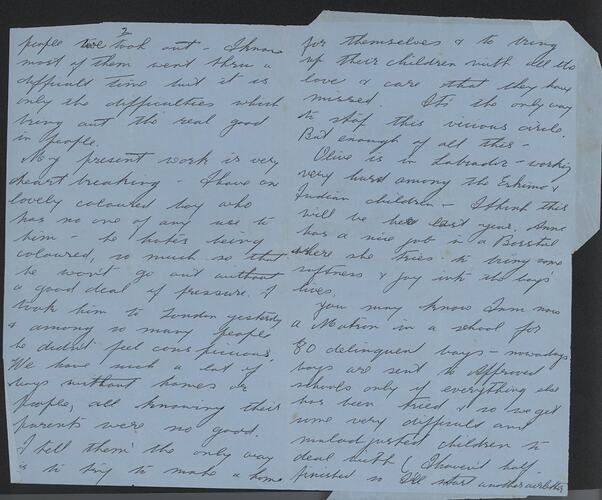 2
people we took out - I know
most of them went thru a
difficult time but it is
only the difficulties which
bring out the real good
in people.
My present work is very
heart breaking - I have one
lovely coloured boy who
has no one of any use to
him - he hates being
coloured, so much so that
he won't go out without
a good deal of pressure. I
took him to London yesterday
& among so many people
he didn't feel conspicuous.
We have such a lot of
boys without homes or
people, all knowing their
parents were no good.
I tell them the only way
is to try to make a home
for themselves & to bring
up their children with all the
love & care that they have
missed. It's the only way
to stop this vicious circle.
But enough of all this -
Olive is in Labrador - working
very hard among the Eskimo &
Indian children - I think this
will be her last year. Anne
has a nice job in a Borstal
where she tries to bring some
softness & joy into the boys'
lives.
You may know I am now
a Matron in a school for
80 delinquent boys - nowadays
boys are sent to approved
schools only if everything else
has been tried & so we get
some very difficult and
maladjusted children to
deal with (I haven't half
finished so I'll start another airletter